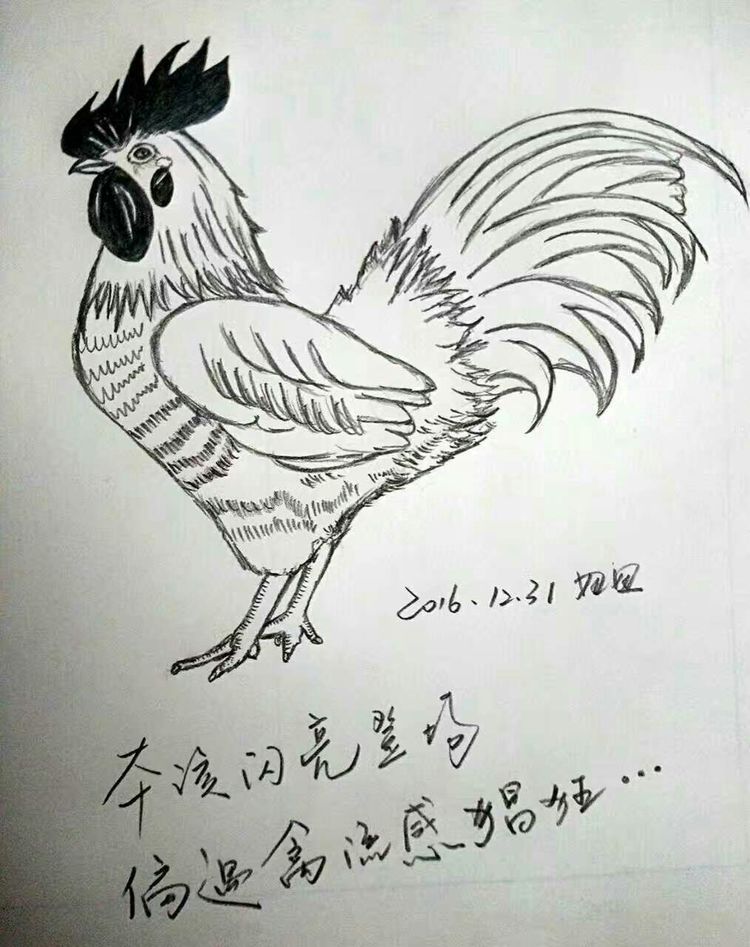 2016.12.31
本该闪亮登场
偏遇禽流感猖狂…